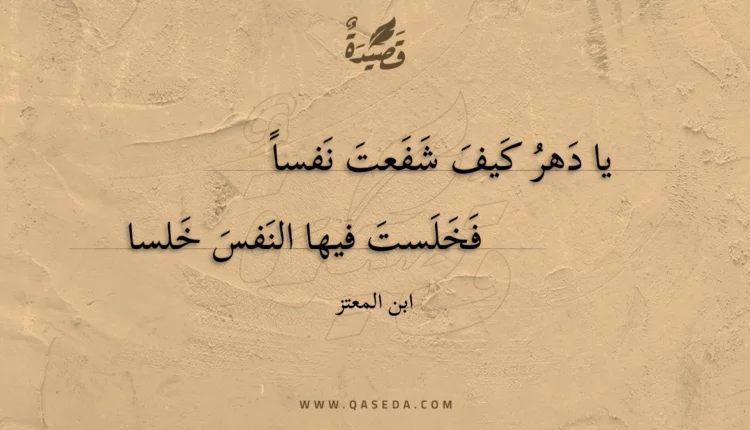 قَصِيْدَةٌ
يا دَهرُ كَيفَ شَفَعتَ نَفساً
فَخَلَستَ فيها النَفسَ خَلسا
ابن المعتز
WWW.QASEDA.COM